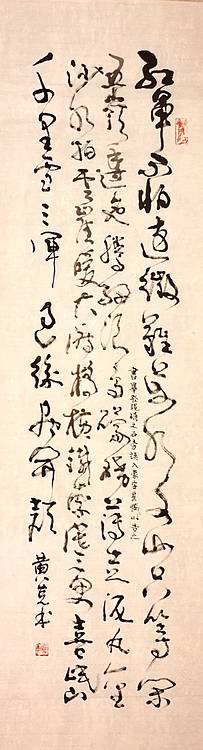 紅軍不怕遠徵難萬水千山只等閑
五嶺逶迤騰細浪烏蒙磅礴走泥丸金
沙水拍雲崖暖大渡橋橫鐵索寒更喜岷山
千里雪三軍過後盡開顏